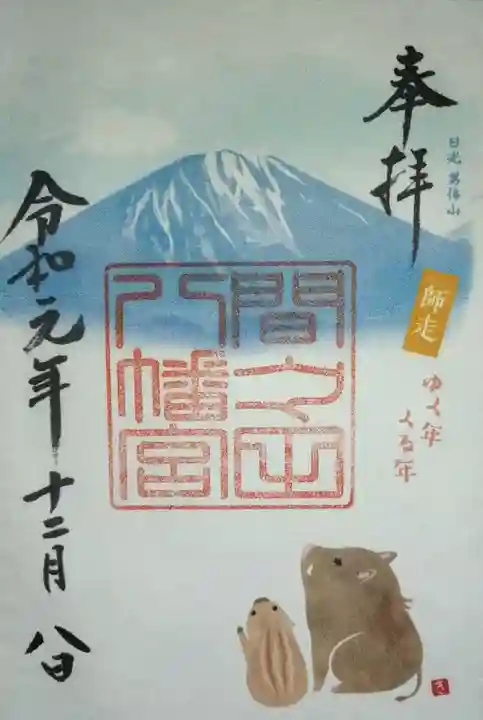 奉拝
日光 男体山
師走
ゆく年
くる年
間々田
八幡宮
令和元年十二月八日